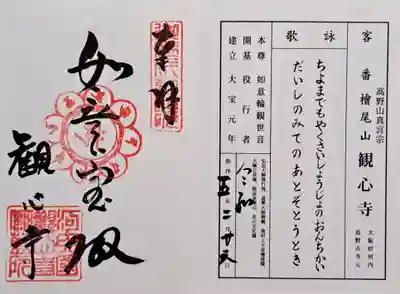 高野山真言宗
客番 檜尾山 観心寺
大阪府河内
長野市寺元
詠歌
ちよまでもやくさいしょうじょのおんちかい
だいしのみてのあとぞとうとき
本尊 如意輪観世音
開基 役行者
建立 大宝元年
令和五
奉拝
如意宝殿
観心寺